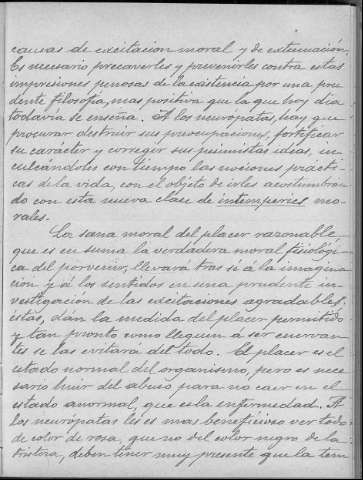 causas de excitacion moral y de extenuación.
Es necesario precaverles y prevenirles contra estas
impresiones penosas de la existencia por una pru
dente filosofía, mas positiva que la que hoy dia
todavia se enseña. A los neurópatas, hay que
procurar destruir sus preocupaciones, fortificar
su carácter y corregir sus pesimistas ideas, in
culcándoles con tiempo las nociones prácti-
cas de la vida, con el objeto de irles acostumbran
do con esta nueva clase de intemperies mo
rales.
La sana moral del placer razonable
que es en suma la verdadera moral fisiológi
ca del porvenir, llevará tras sí á la imagina
cion y á los sentidos en una prudente in-
vestigación de las excitaciones agradables,
éstas, dán la medida del placer permitido
y tan pronto como lleguen á ser enervan
tes se las evitará del todo. El placer es el
estado normal del organismo, pero es nece
sario huir del abuso para no caer en el
estado anormal, que es la enfermedad. A
los neurópatas les es mas beneficioso ver todo
de color de rosa, que no del color negro de la
tristeza, deben tener muy presente que la tem